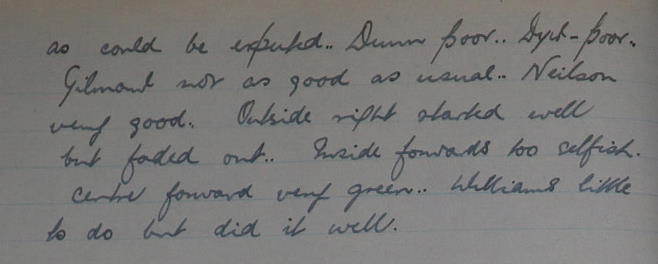 as could be expected.. Dunn poor.. Dyet - poor.
Gilmant not as good as usual.. Neilson
very good. Outside right started well
but faded out.. Inside forwards too selfish.
Centre forward very green.. Williams little
to do but did it well.